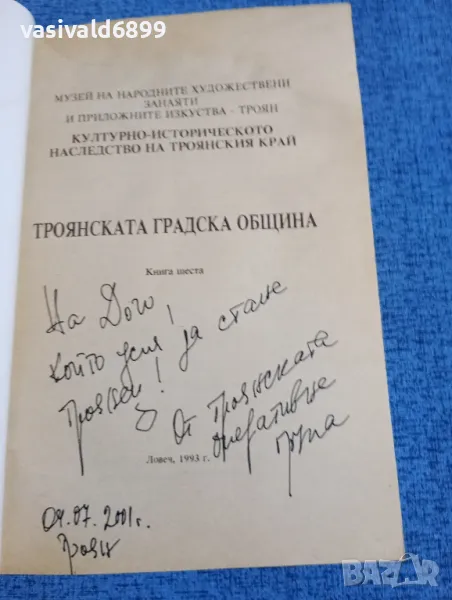 vasivald6899
МУЗЕЙ НА НАРОДНИТЕ ХУДОЖЕСТВЕНИ
ЗАНАЯТИ
И ПРИЛОЖНИТЕ ИЗКУСТВА - ТРОЯН
КУЛТУРНО-ИСТОРИЧЕСКОТО
НАСЛЕДСТВО НА ТРОЯНСКИЯ КРАЙ
ТРОЯНСКАТА ГРАДСКА ОБЩИНА
Книга шеста
На Дочо
който успя! да стане
троянец!
От Троянската
оперативна
група
Ловеч, 1993 г.
04.07.2001г.
Троян
BAZAR